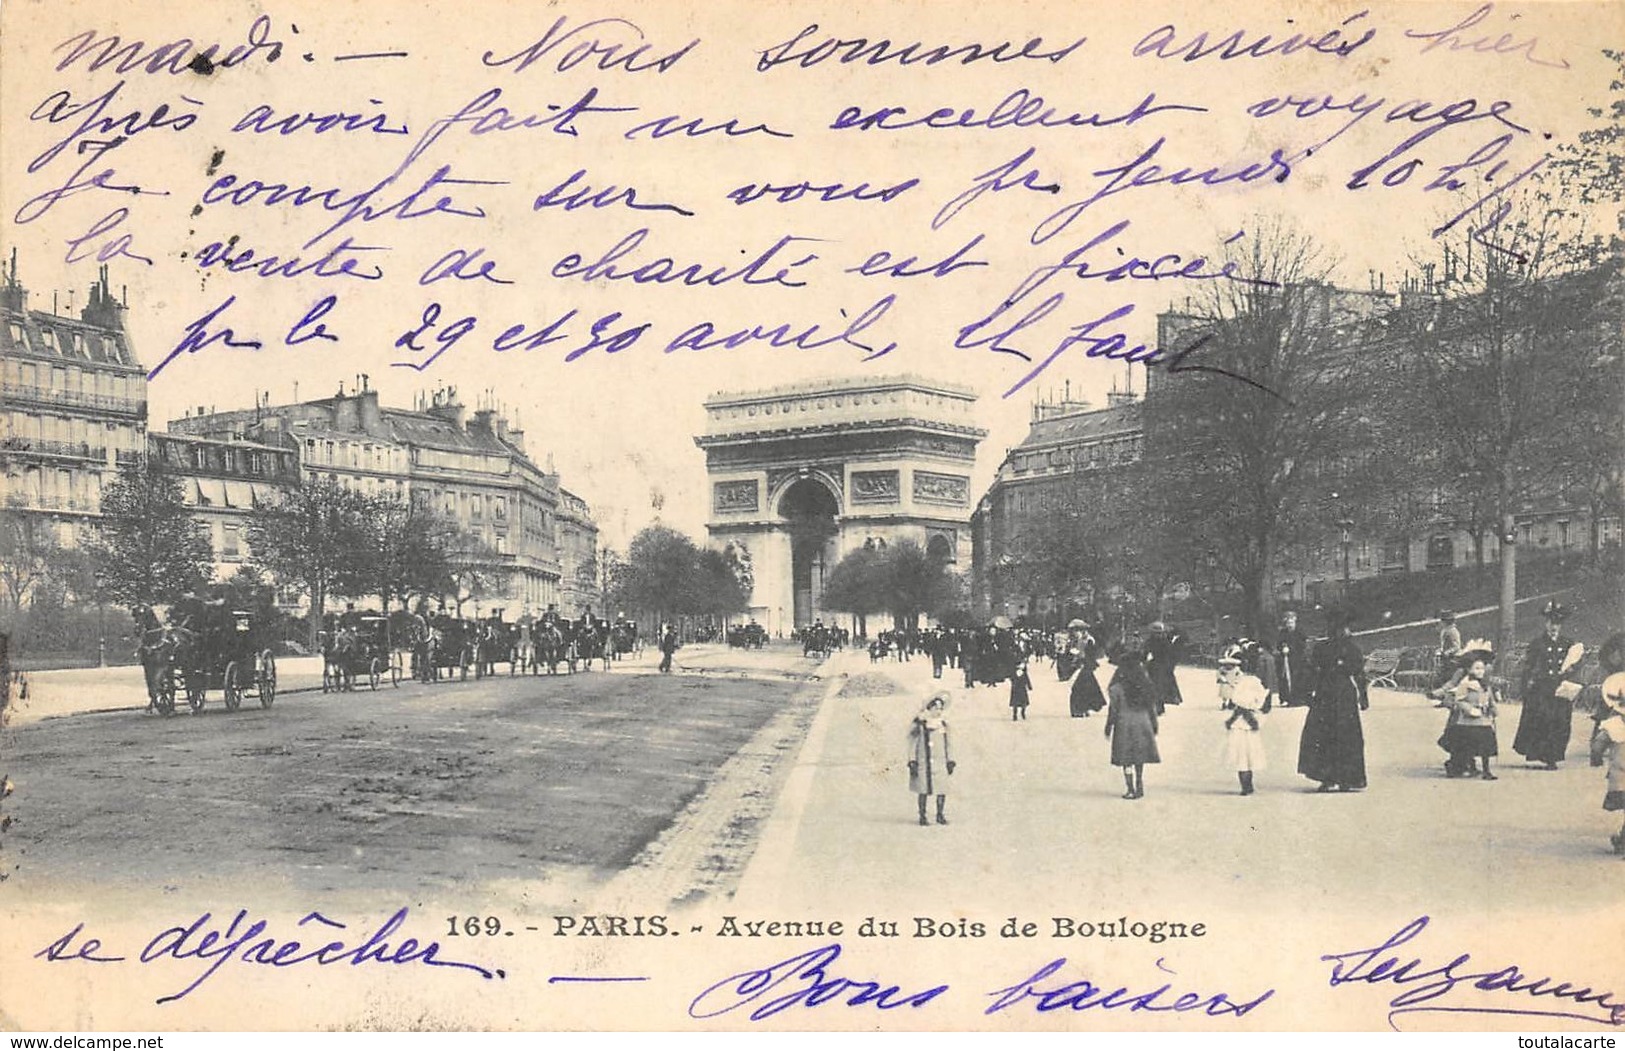 mardi. — Nous sommes arrivés hier
après avoir fait un excellent voyage.
Je compte sur vous pr jeudi 10 h ½
la vente de charité est fixée
pr le 29 et 30 avril, il faut
se dépêcher. — Bons baisers Suzanne
169. - PARIS. - Avenue du Bois de Boulogne
www.delcampe.net
toutalacarte